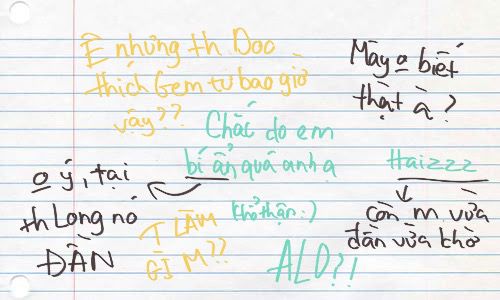 Ê nhưng th Doo
thích Gem từ bao giờ
vậy??
Mày o biết
thật à?
Chắc do em
bí ẩn quá anh ạ
(khổ thận:)
Haizzz
o ý, tại
th Long nó
ĐẦN
T LÀM
GÌ M??
còn m vừa
đần vừa khờ
ALO?!